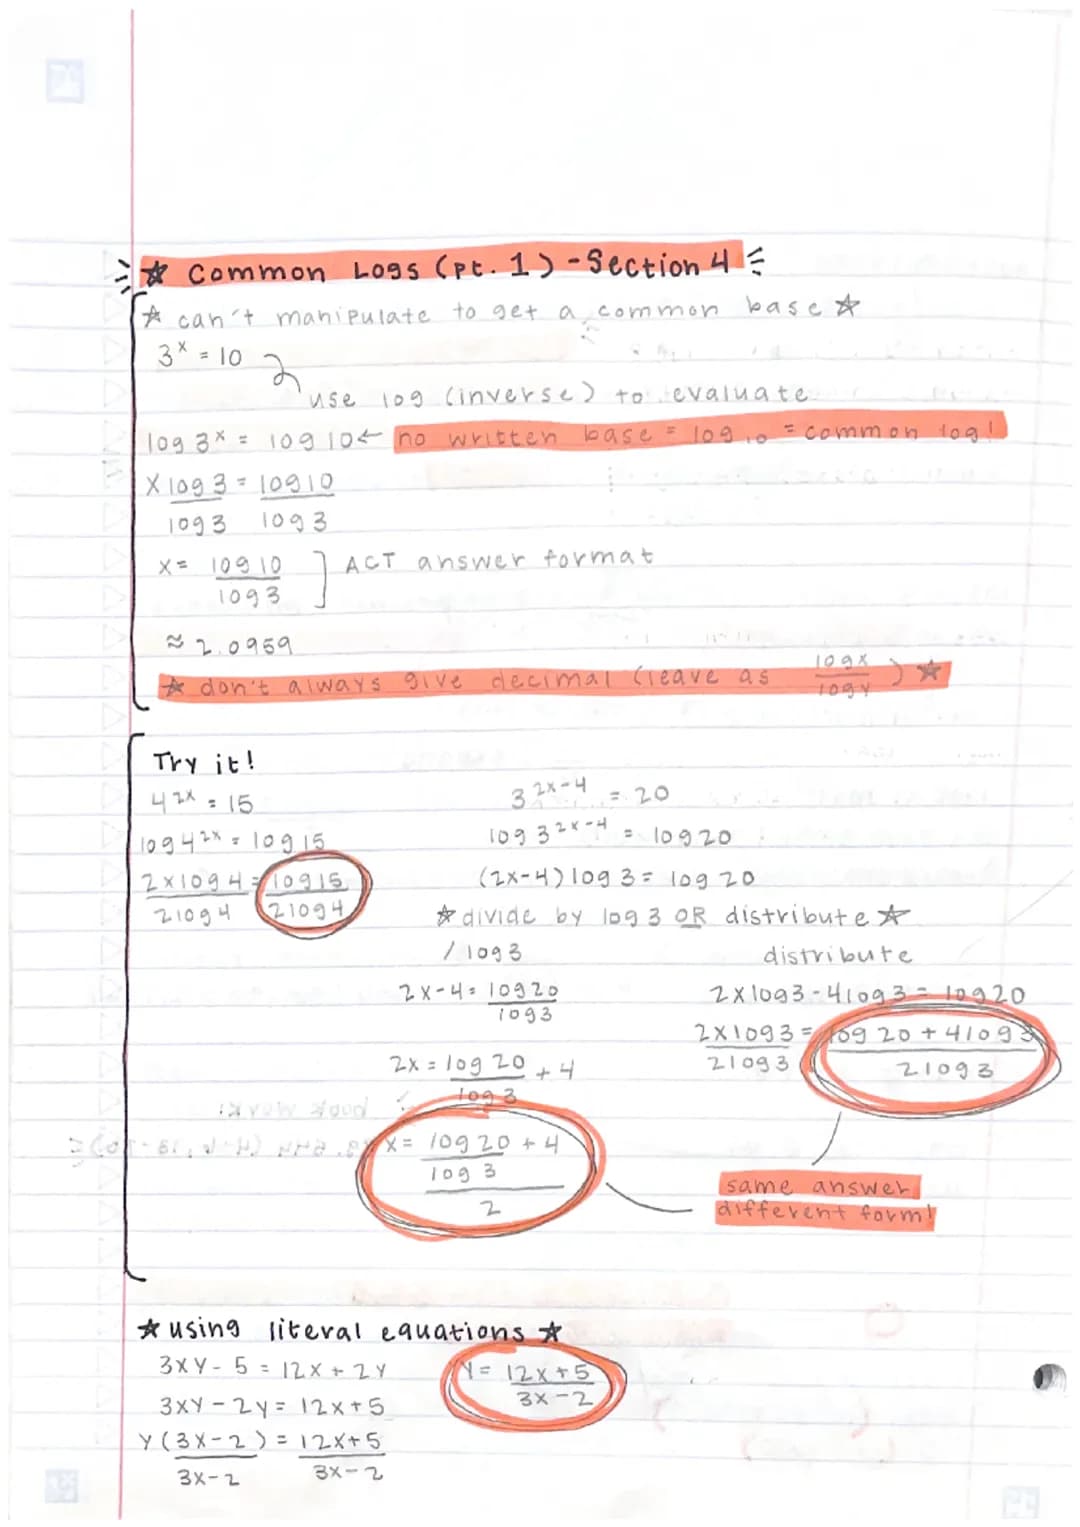 ☆ Common Logs (pt. 1) - Section 4
☆ can't manipulate to get a common base ☆
3^x = 10
use log (inverse) to evaluate
log 3^x = log 10 ← no written base = log₁₀ = common log!
x log 3 = log 10
log 3 log 3
x = log 10 ] ACT answer format
log 3
≈ 2.0959
☆ don't always give decimal (leave as logx/logy) ☆
Try it!
4^2x = 15
log 4^2x = log 15
2x log 4 = log 15
2 log 4 2 log 4
3^2x-4 = 20
log 3^2x-4 = log 20
(2x-4) log 3 = log 20
☆ divide by log 3 OR distribute ☆
/ log 3
2x-4 = log 20
log 3
2x = log 20 + 4
log 3
x = log 20 + 4
log 3
2
distribute
2x log 3 - 4 log 3 = log 20
2x log 3 = log 20 + 4 log 3
2 log 3 2 log 3
same answer
different form!
☆ using literal equations ☆
3xy - 5 = 12x + 2y
3xy - 2y = 12x + 5
y(3x-2) = 12x+5
3x-2 3x-2
y = 12x+5
3x-2